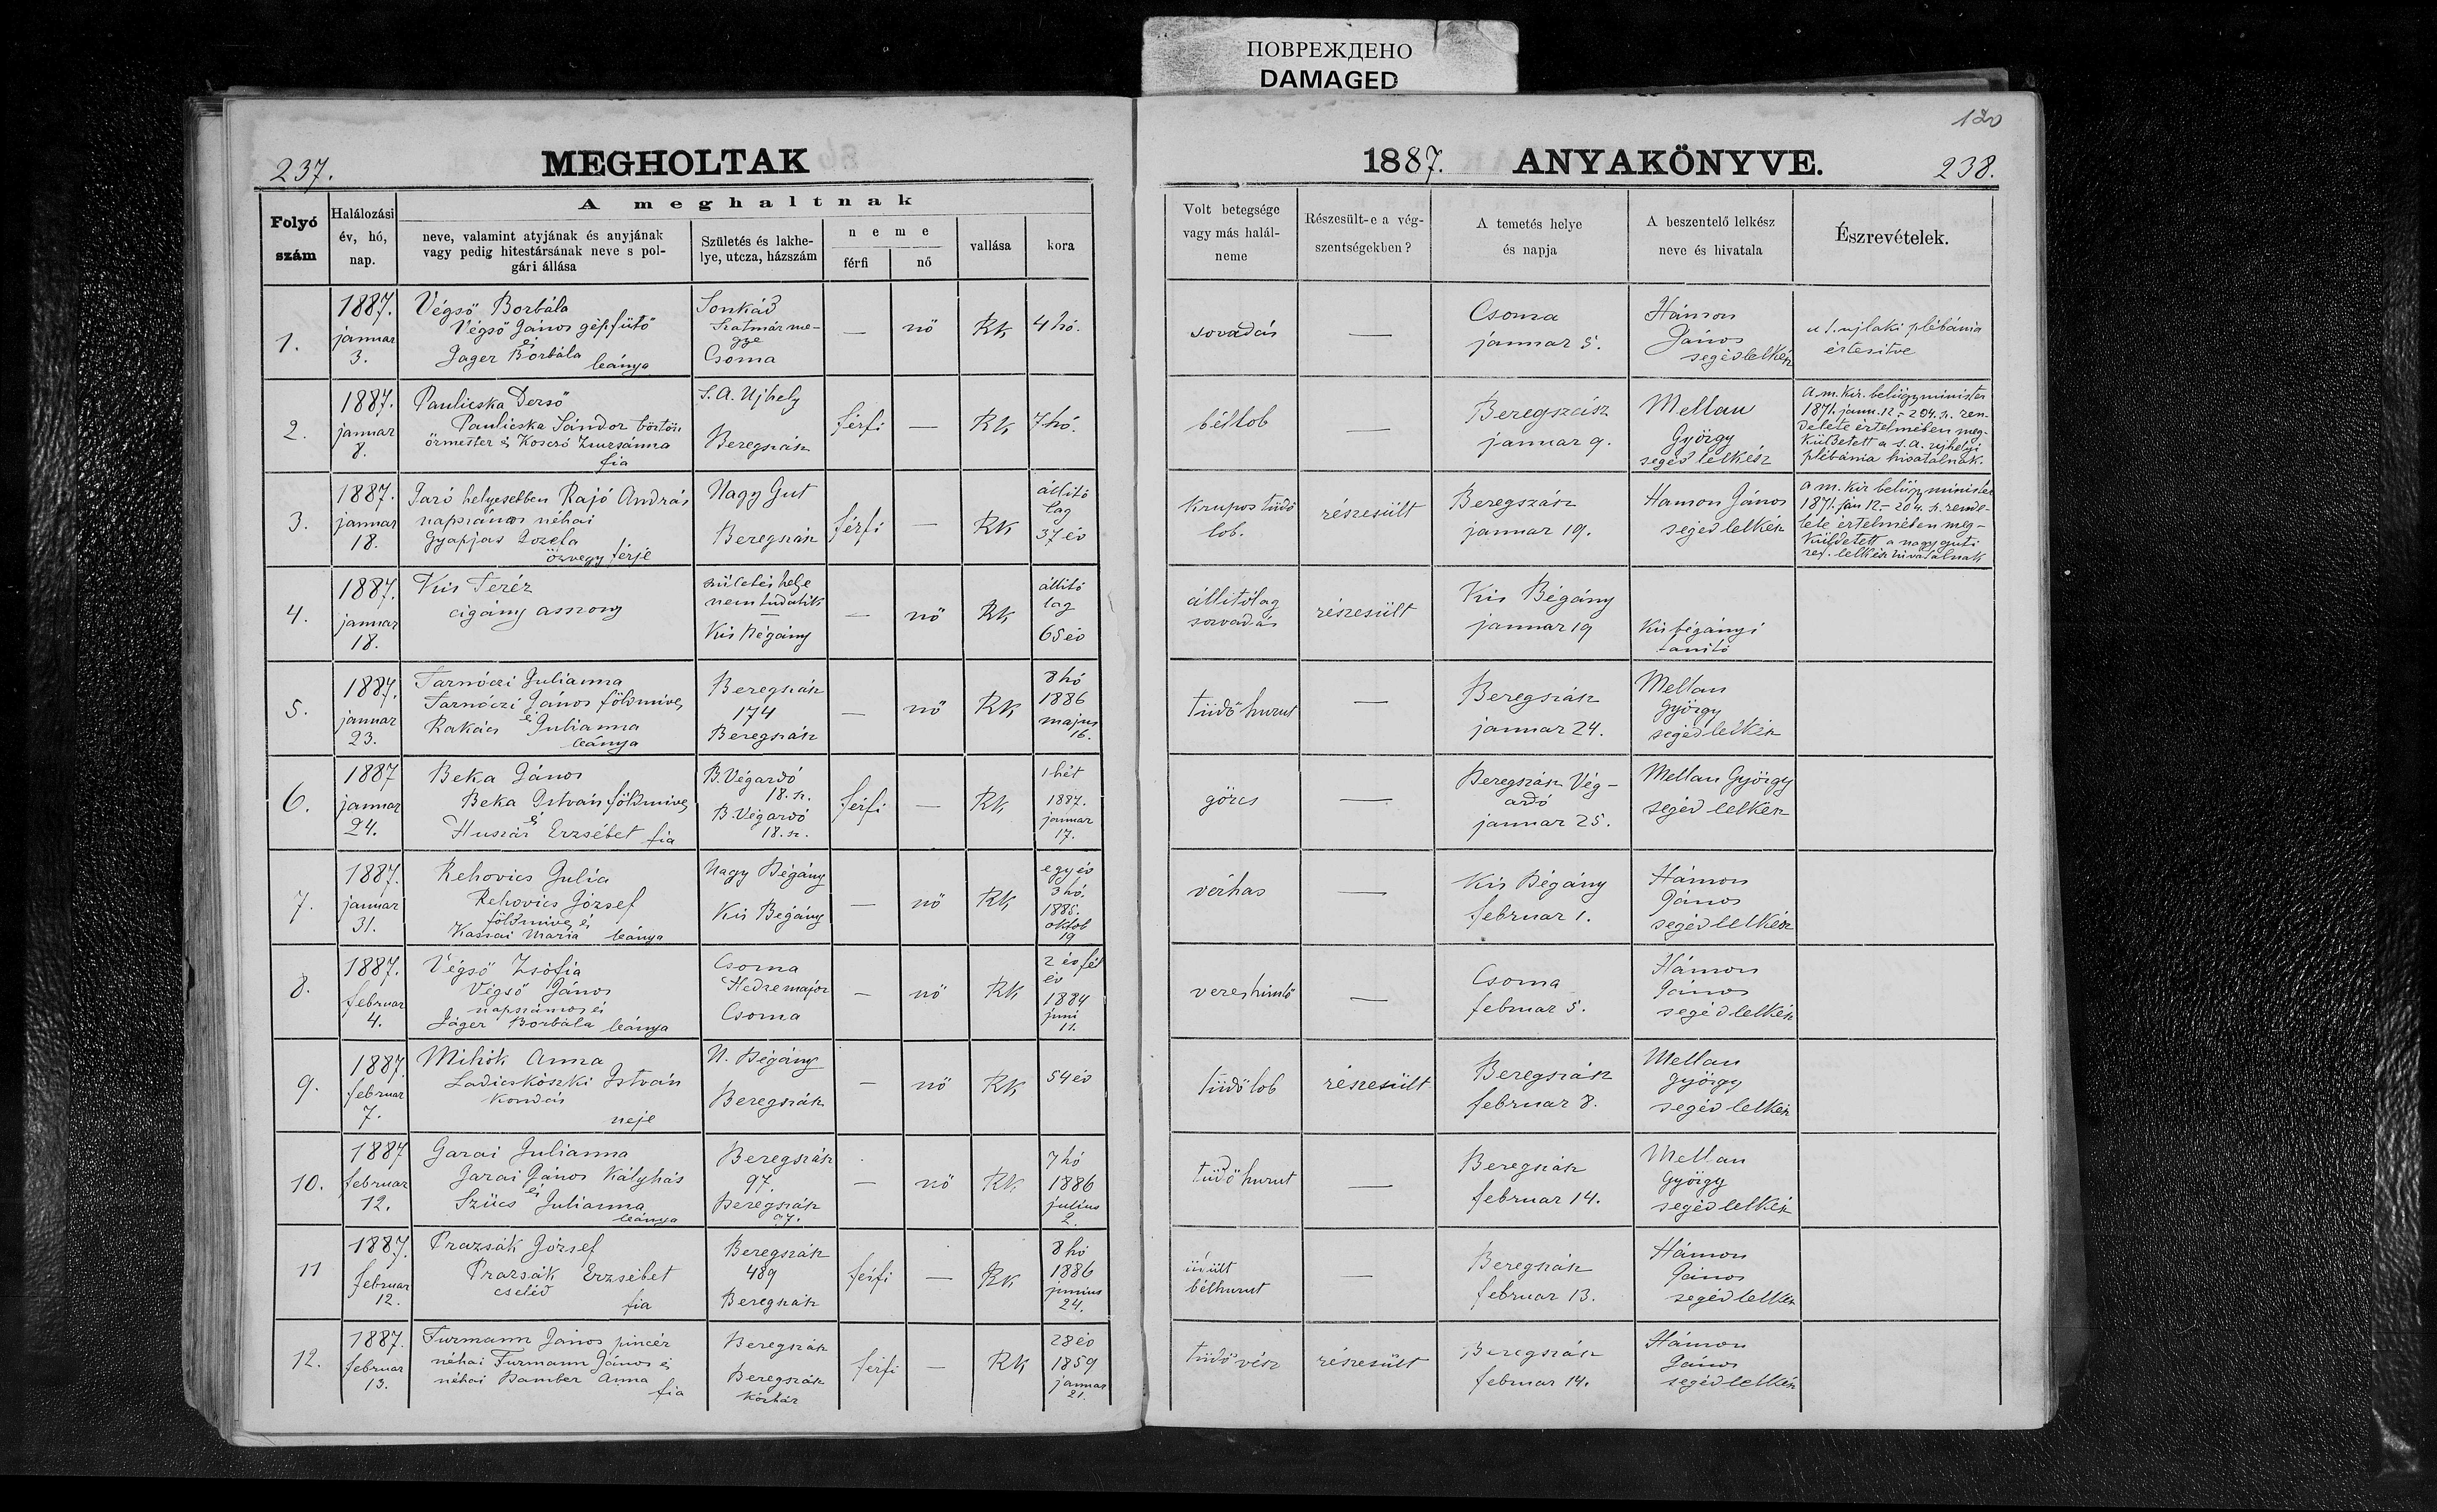 ПОВРЕЖДЕНО
DAMAGED
120
237.
MEGHOLTAK
1887.
ANYAKÖNYVE.
238.
Folyó
szám
Halálozási
év, hó,
nap.
A meghaltnak
neve, valamint atyjának és anyjának
vagy pedig hitestársának neve s pol-
gári állása
Születés és lakhe-
lye, utcza, házszám
neme
férfi
nő
vallása
kora
Volt betegsége
vagy más halál-
neme
Részesült-e a vég-
szentségekben?
A temetés helye
és napja
A beszentelő lelkész
neve és hivatala
Észrevételek.
1.
1887.
januar
3.
Végső Borbála
Végső János gépfűtő
és
Jager Borbála
leánya
Sonkád
Szatmár me-
gye
Csoma
—
nő
RK
4 hó.
sorvadás
—
Csoma
január 5.
Hámon
János
segédlelkész
a t. ujlaki plébánia
értesitve
2.
1887.
januar
8.
Paulicska Dersö
Paulicska Sándor börtön
örmester és Koscsó Zsuzsánna
fia
S. A. Ujhely
Beregszász
férfi
—
RK
7 hó.
béllob
—
Beregszász
januar 9.
Mellau
György
segéd lelkész
A m. kir. belügyminister
1871. janu. 12.- 204. sz. ren-
delete értelmében meg-
küldetett a s. a. ujhelyi
plébánia hivatalnak.
3.
1887.
januar
18.
Jaró helyesebben Rajó András
napszámos néhai
Gyapjas Jozefa
özvegy férje
Nagy Gut
Beregszász
férfi
—
RK
állitó
lag
37 év
krupos tüdő
lob.
részesült
Beregszász
januar 19.
Hamon János
segéd lelkész
a m. kir belügyminister
1871. jan 12- 204. sz. rende-
lete értelmében meg-
küldetett a nagy guti
ref. lelkész hivatalnak
4.
1887.
januar
18.
Kis Teréz
cigány asszony
születés helye
nem tudatik
—
Kis Bégány
—
nő
RK
állitó
lag
65 év
állitólag
sorvadás
részesült
Kis Bégány
januar 19
Kis bégányi
tanitó
5.
1887.
januar
23.
Tarnóczi Julianna
Tarnóczi János földmives
és
Rakács Julianna
leánya
Beregszász
174
Beregszász
—
nő
RK
8 hó
1886
majus
16.
Tüdő hurut
—
Beregszász
januar 24.
Mellau
György
segéd lelkész
6.
1887
januar
24.
Beka János
Beka István földmives
és
Huszár Erzsébet fia
B. Végardó
18. sz.
B. Végardó
18. sz.
férfi
—
RK
1 hét
1887.
januar
17.
görcs
—
Beregszász Vég-
ardó
januar 25.
Mellau György
segéd lelkész
7.
1887.
januar
31.
Rehovics Julia
Rehovics József
földmives és
Kassai Maria leánya
Nagy Bégány
Kis Bégány
—
nő
RK
egy év
3 hó.
1885.
oktob
19
vérhas
—
Kis Bégány
februar 1.
Hámon
János
segéd lelkész
8.
1887.
februar
4.
Végső Zsófia
Végső János
napszámos és
Jáger Borbála leánya
Csoma
Hedremajor
Csoma
—
nő
RK
2 és fél
év
1884
juni
11.
veres himlő
—
Csoma
februar 5.
Hámon
János
segéd lelkész
9.
1887.
februar
7.
Mihók Anna
Ladicskószki István
kondás
neje
N. Bégány
Beregszász
—
nő
RK
54 év
Tüdő lob
részesült
Beregszász
februar 8.
Mellau
György
segéd lelkész
10.
1887
februar
12.
Garai Julianna
Garai János kályhás
és
Szücs Julianna
leánya
Beregszász
97.
Beregszász
97.
—
nő
RK
7 hó
1886
julius
2.
Tüdő hurut
—
Beregszász
februar 14.
Mellau
György
segéd lelkész
11
1887.
februar
12.
Prazsák József
Prazsák Erzsébet
cseléd
fia
Beregszász
489
Beregszász
férfi
—
RK
8 hó
1886
junius
24.
üdült
bélhurut
—
Beregszász
februar 13.
Hámon
János
segéd lelkész
12.
1887.
februar
13.
Furmann János pincér
néhai Furmann János és
néhai Bamber Anna
fia
Beregszász
Beregszász
kórház
férfi
—
RK
28 év
1859
januar
21.
Tüdő vész
részesült
Beregszász
februar 14.
Hámon
János
segéd lelkész